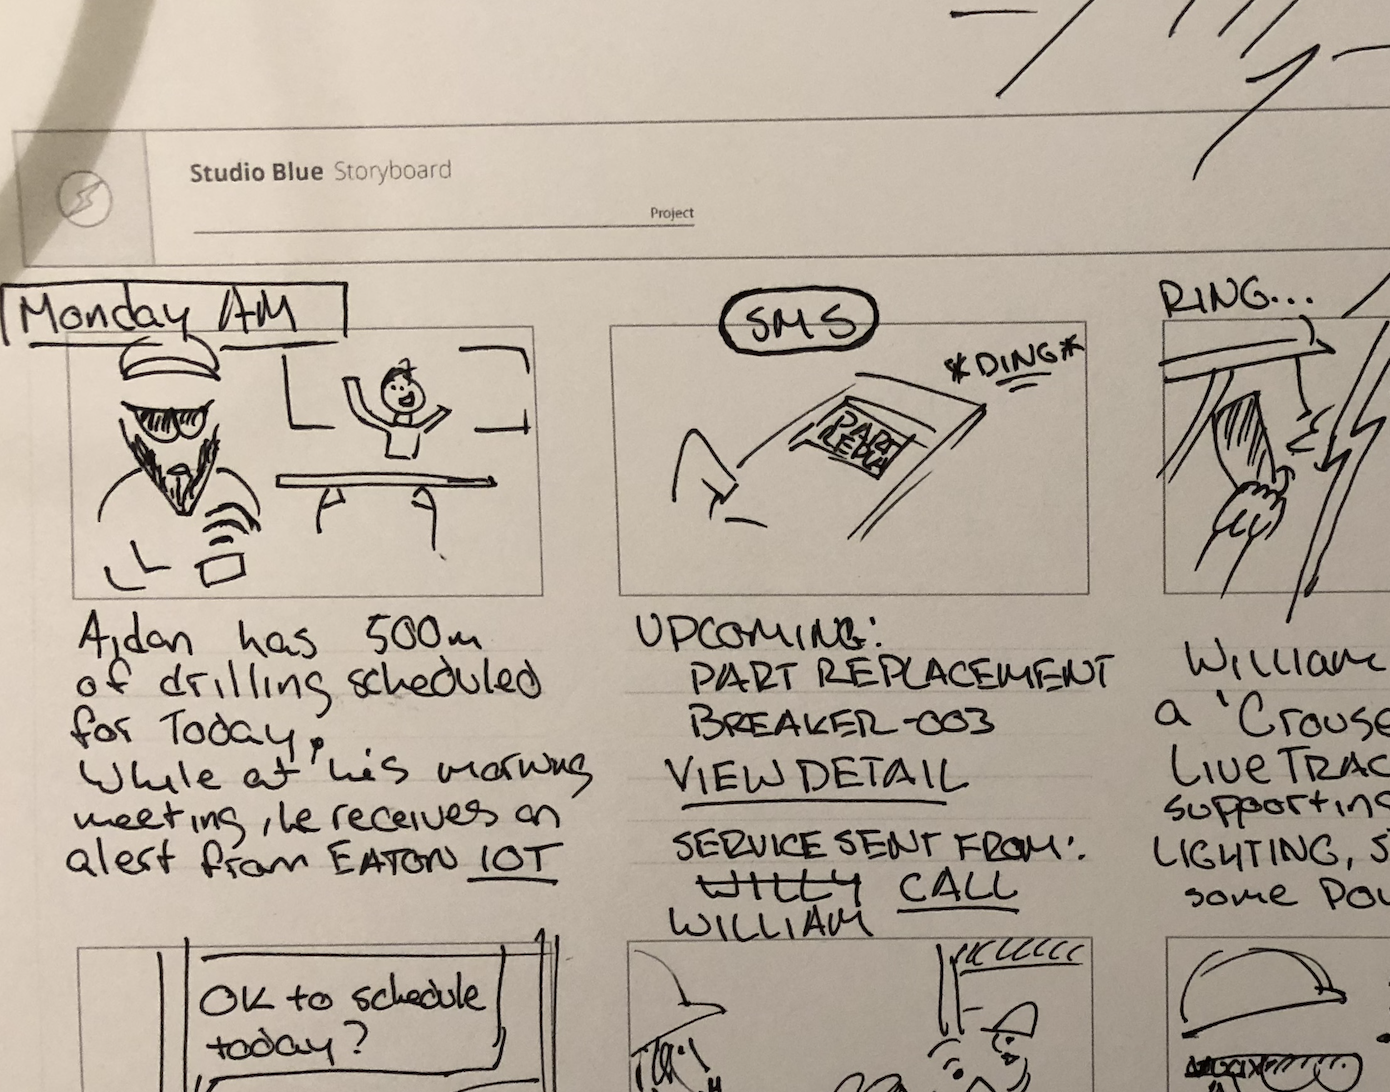 Studio Blue Storyboard
Project
Monday AM
Aidan has 500m
of drilling scheduled
for Today.
While at his morning
meeting, he receives an
alert from EATON IOT
SMS
*DING*
PART
REPLA
UPCOMING:
PART REPLACEMENT
BREAKER-003
VIEW DETAIL
SERVICE SENT FROM:
WILLY CALL
WILLIAM
RING...
William
a 'Crouse
LIVETRAC
supporting
LIGHTING, S
some Pow
OK to schedule
today?